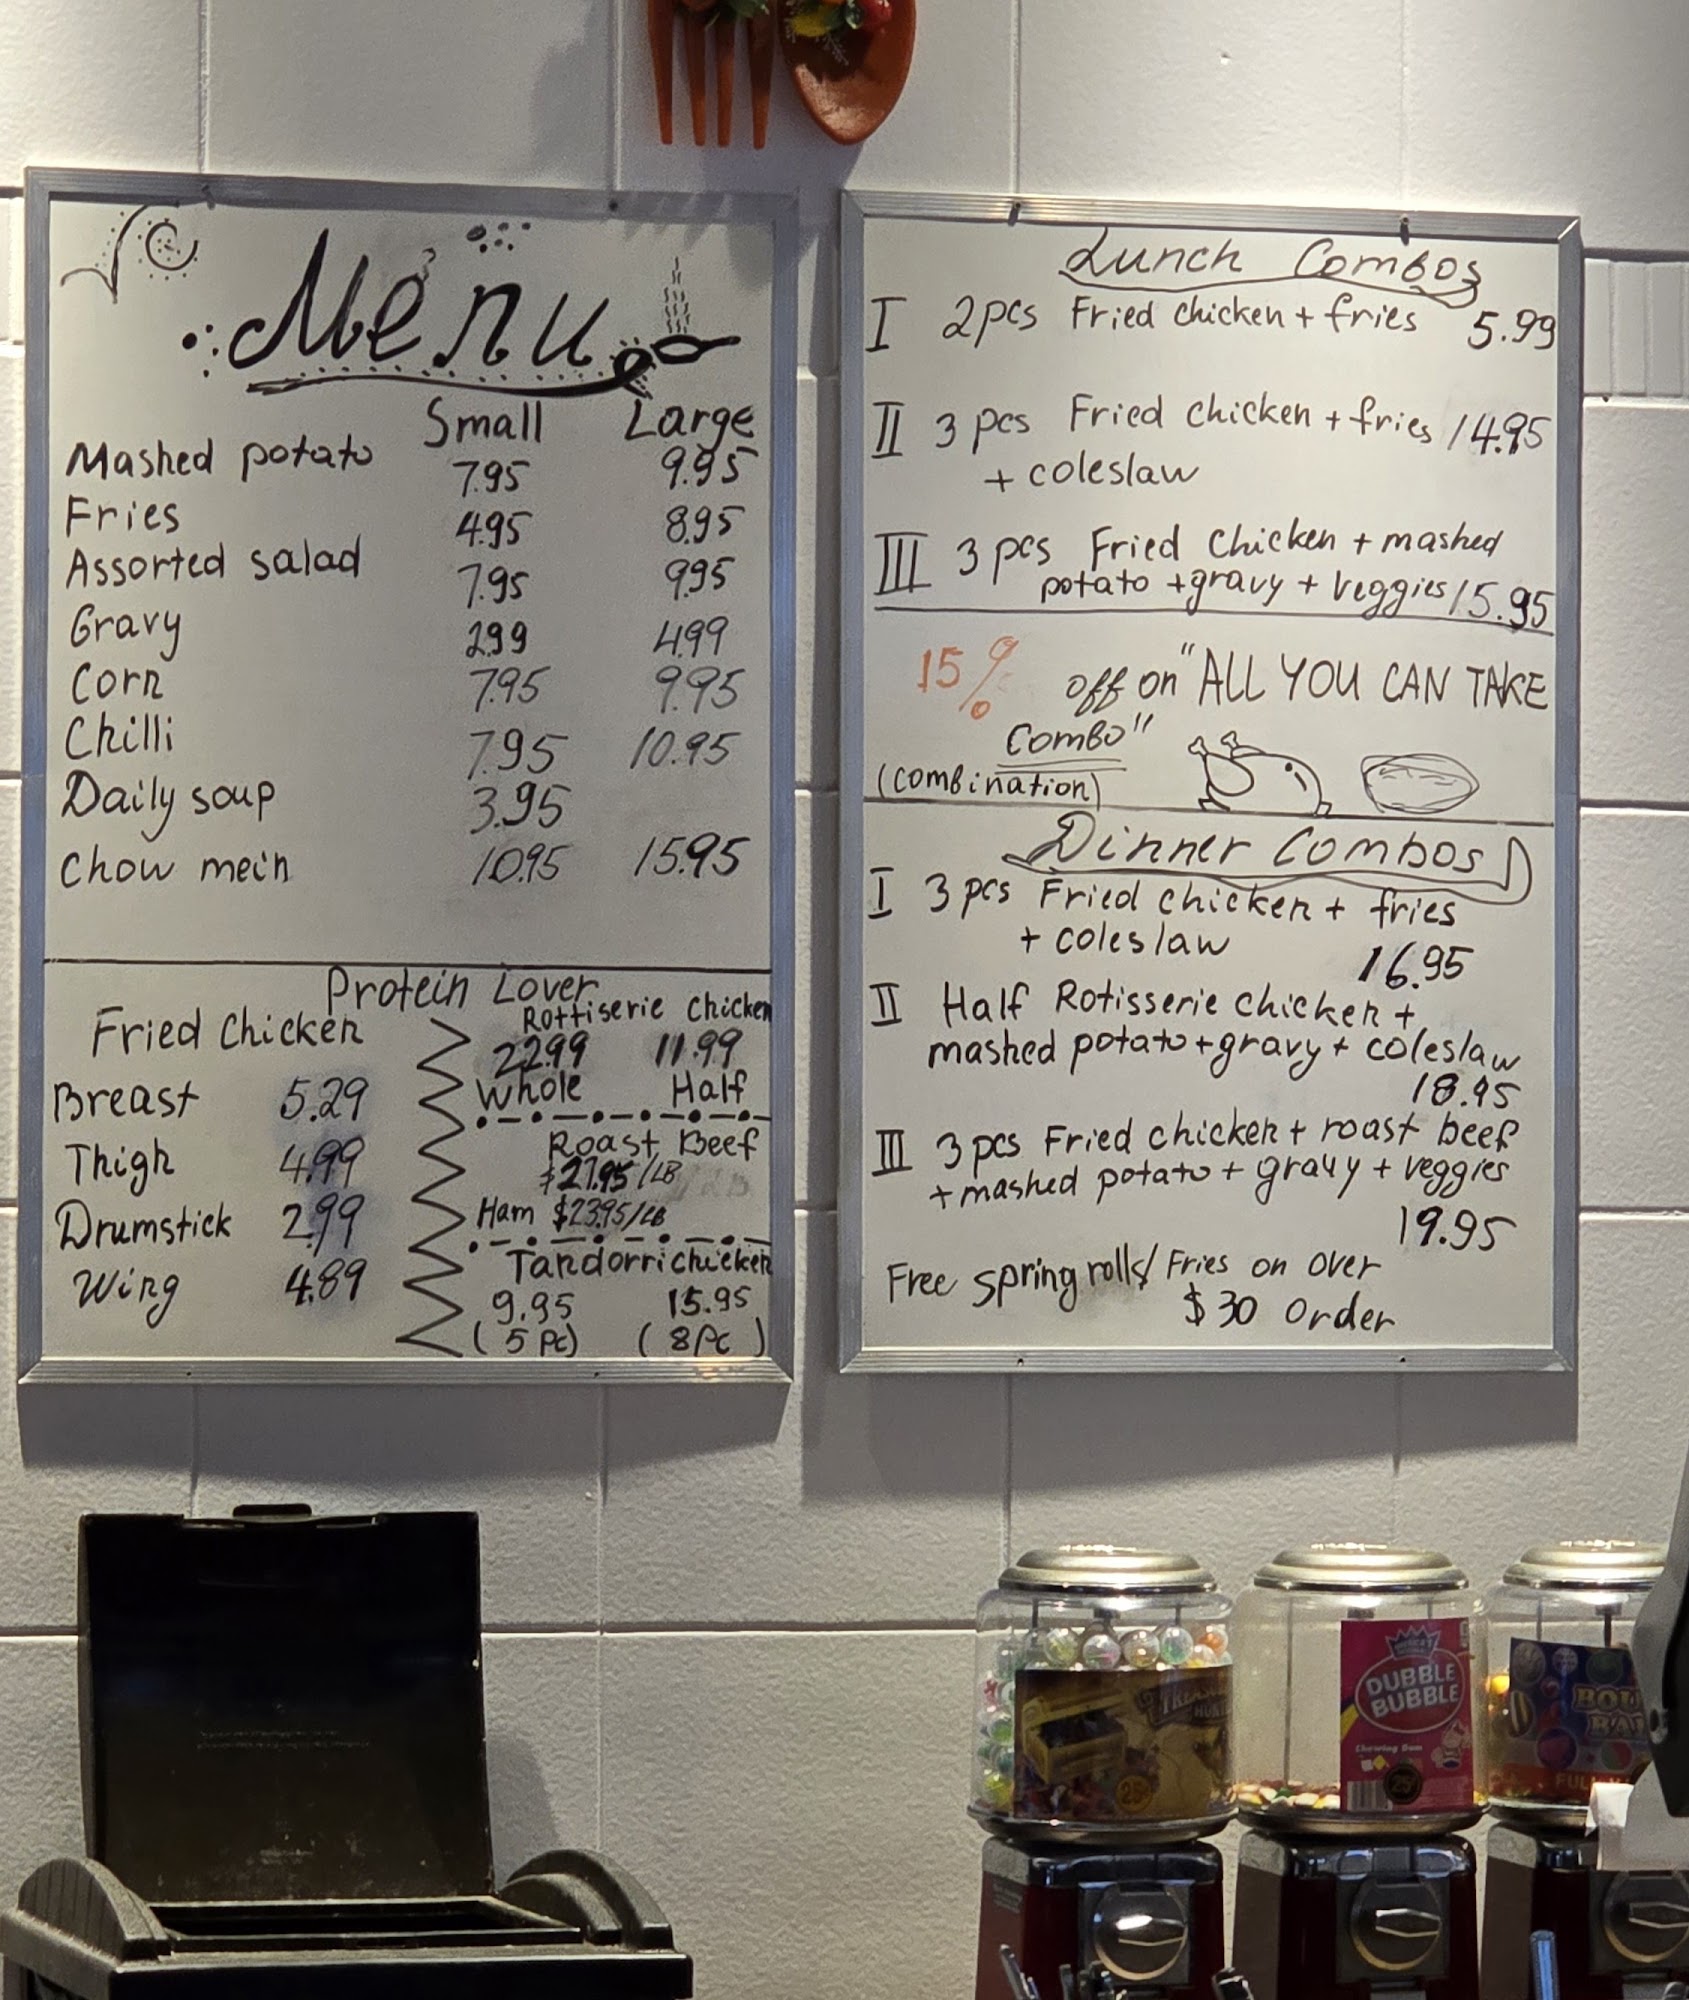 Menu
Small Large
Mashed potato 7.95 9.95
Fries 4.95 8.95
Assorted salad 7.95 9.95
Gravy 2.99 4.99
Corn 7.95 9.95
Chilli 7.95 10.95
Daily soup 3.95
Chow mein 10.95 15.95
Protein Lover
Fried Chicken
Breast 5.29
Thigh 4.99
Drumstick 2.99
Wing 4.89
Rottiserie Chicken
22.99 11.99
Whole Half
Roast Beef
$27.95/LB
Ham $23.95/LB
Tandorri chicken
9.95 15.95
(5 pc) (8 pc)
Lunch Combos
I 2pcs Fried chicken + fries 5.99
II 3 pcs Fried chicken + fries 14.95
+ coleslaw
III 3 pcs Fried Chicken + mashed
potato + gravy + veggies 15.95
15% off on "ALL YOU CAN TAKE
Combo"
(combination)
Dinner Combos
I 3 pcs Fried chicken + fries
+ coleslaw
16.95
II Half Rotisserie chicken +
mashed potato + gravy + coleslaw
18.95
III 3 pcs Fried chicken + roast beef
+ mashed potato + gravy + veggies
19.95
Free spring rolls/Fries on over
$30 order
TREASURE
HUNT
25¢
AMERICA'S
DUBBLE
BUBBLE
Chewing Gum
25¢